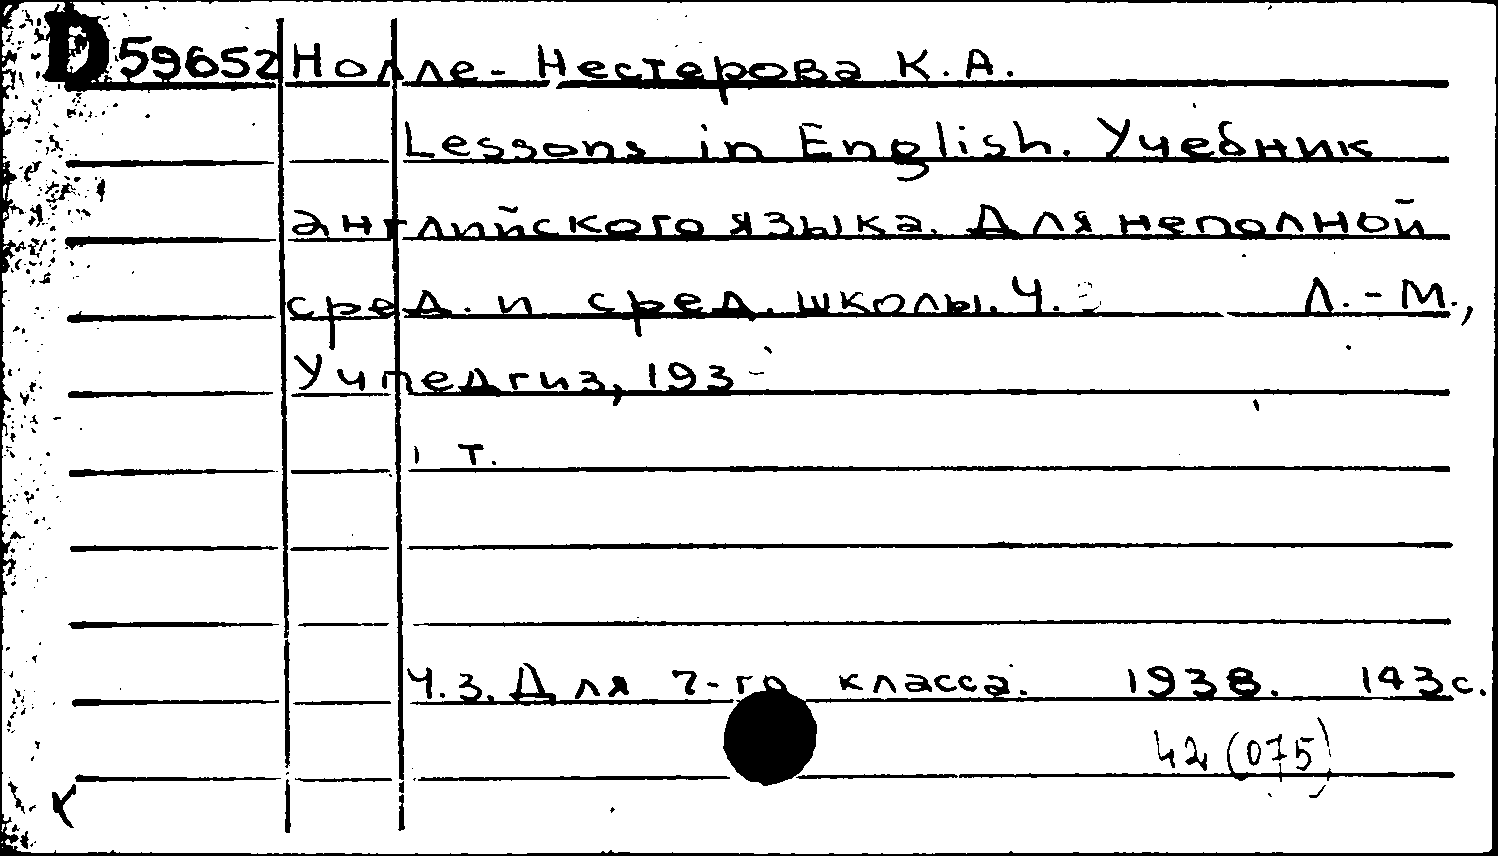 D 59652 Нолле-Нестерова К.А.
Lessons in English. Учебник
английского языка. Для неполной
сред. и сред. школы. Ч. Л.-М.,
Учпедгиз, 193
т.
Ч.3. Для 7-го класса. 1938. 143с.
42 (075)